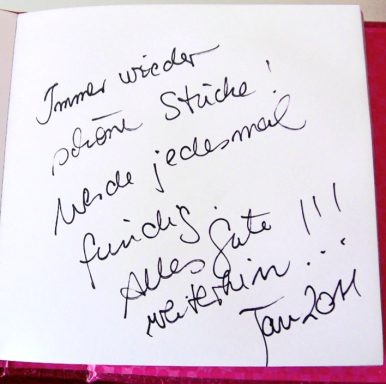 Immer wieder
schöne Stücke!
Werde jedesmal
fündig.
Alles Gute !!!
weiterhin...
Jan 2011